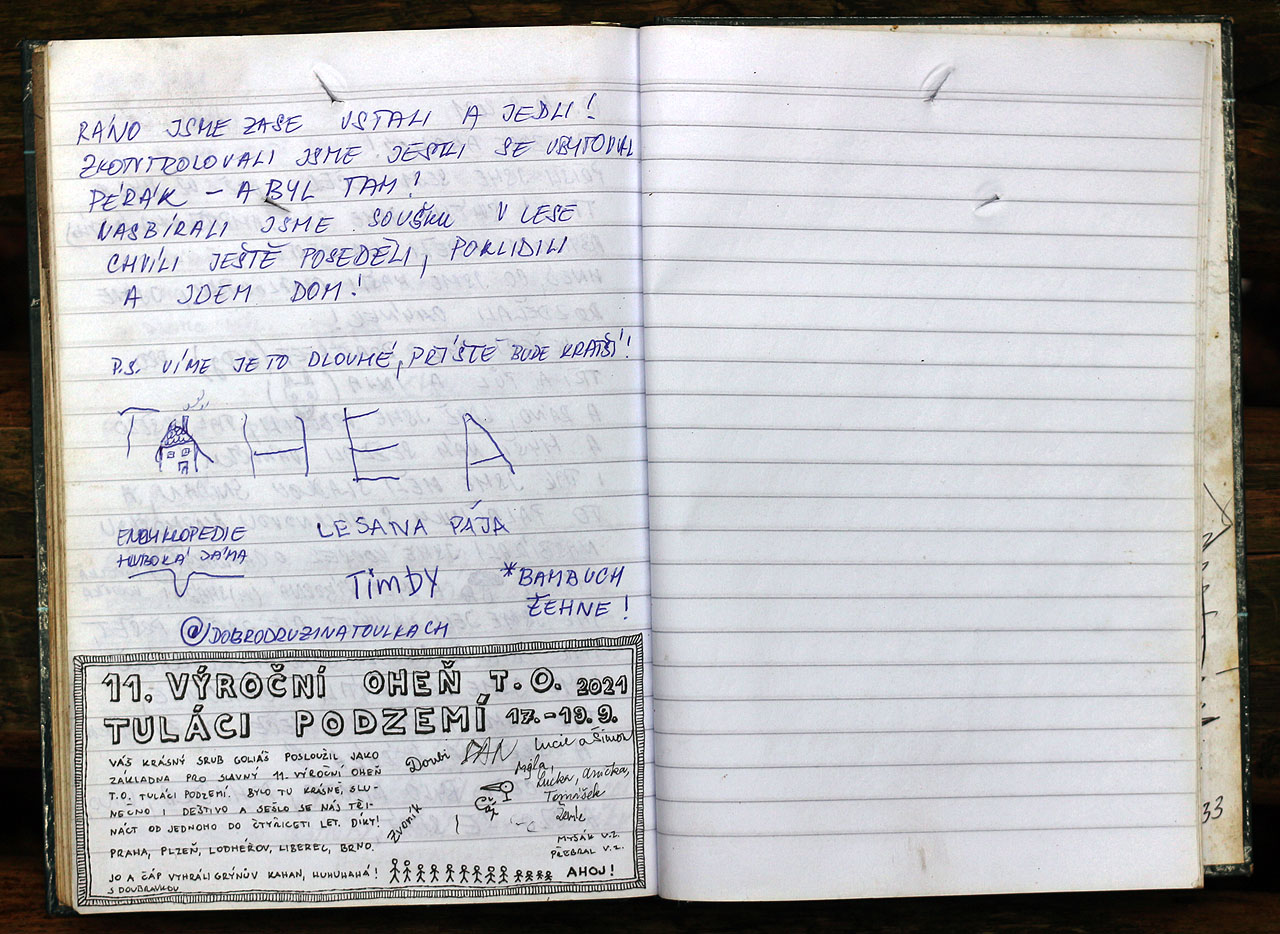 RÁNO JSME ZASE VSTALI A JEDLI!
ZKONTROLOVALI JSME JESTLI SE UBYTOVAL
PÉRÁK – A BYL TAM!
NASBÍRALI JSME SOUŠKU V LESE
CHVÍLI JEŠTĚ POSEDĚLI, POKLIDILI
A JDEM DOM!
P.S. VÍME JE TO DLOUHÉ, PŘÍŠTĚ BUDE KRATŠÍ!
T HEA
ENCYKLOPEDIE
HLUBOKÁ JÁMA
LESANA PÁJA
TIMDY
*BAMBUCH
ŽEHNE!
@DOBRODRUZINATOULKACH
11. VÝROČNÍ OHEŇ T.O. 2021
TULÁCI PODZEMÍ 17.-19.9.
VÁŠ KRÁSNÝ SRUB GOLIÁŠ POSLOUŽIL JAKO
ZÁKLADNA PRO SLAVNÝ 11. VÝROČNÍ OHEŇ
T.O. TULÁCI PODZEMÍ. BYLO TU KRÁSNĚ, SLU-
NEČNO I DEŠTIVO A SEŠLO SE NÁS TŘI-
NÁCT OD JEDNOHO DO ČTYŘICETI LET. DÍKY!
PRAHA, PLZEŇ, LODHÉŘOV, LIBEREC, BRNO.
JO A ČÁP VYHRÁLI GRÝNŮV KAHAN, HUHUHAHÁ!
S DOUBRAVKOU
Doubi DAN Lucie a Šimon
Mýla,
Lucka, Anička,
Čáp
Tomášek
Zvoník
MYŠÁK V.Z.
PŘEBRAL V.Z.
AHOJ!
33